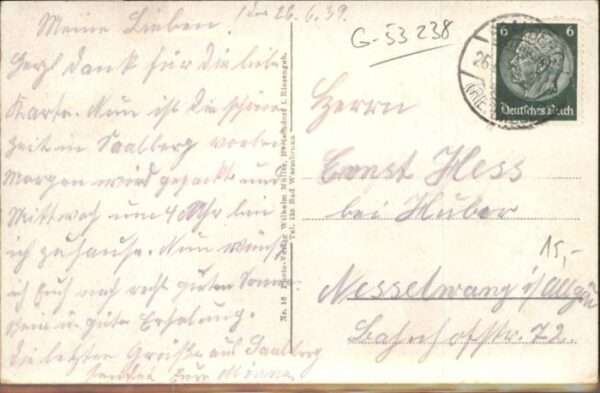 26.6.39.
Meine Lieben.
Herzl dank für die liebe
Karte. Nun ist die schöne
zeit in Saalberg vorbei
Morgen wird gepackt und
Mittwoch um 4 Uhr bin
ich zuhause. Nun wünsch
ich Euch noch recht guten
u. gute Erholung.
die letzten Grüße aus Saalberg
sendet Eure
No. 16 Photo-Verlag Wilhelm Müller, i. Riesengeb.
Tel. Bad Warmbrunn
G-53 238
6 6
Deutsches Reich
26
Herrn
Ernst Hess
bei Huber
15,-
Nesselwang i/Allgäu
Bahnhofstr. 72.